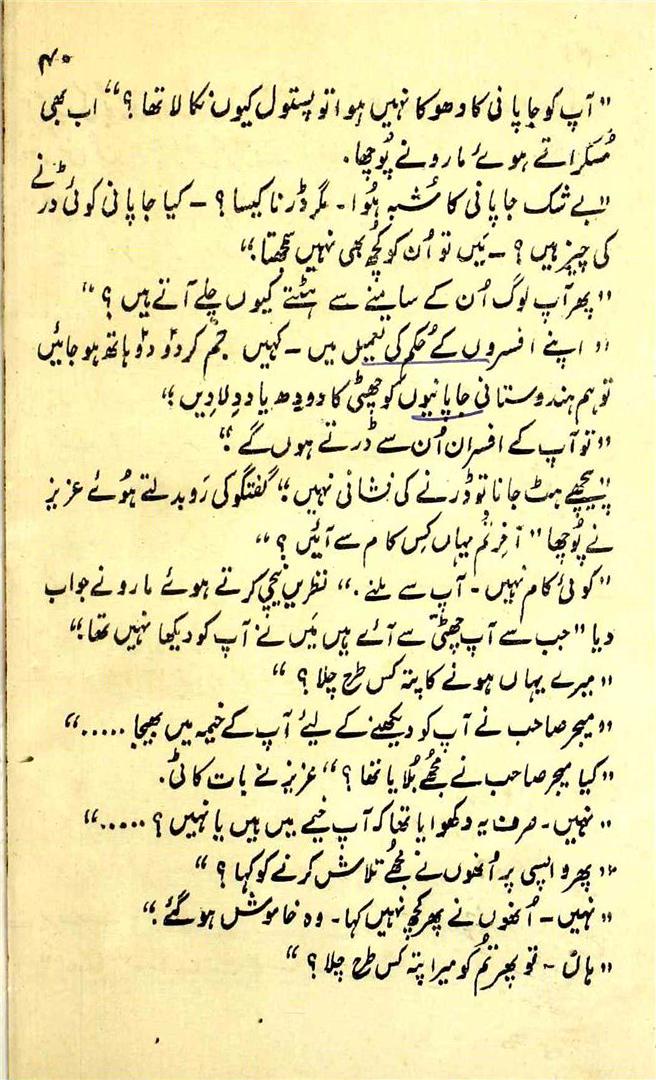 ۴۰
"آپ کو جاپانی کا دھوکا نہیں ہوا تو پستول کیوں نکالا تھا ؟" اب بھی
مُسکراتے ہوئے مارو نے پُوچھا۔
"بے شک جاپانی کا شُبہ ہُوا۔ مگر ڈرنا کیسا ؟ ۔ کیا جاپانی کوئی ڈرنے
کی چیز ہیں ؟ ۔ مَیں تو اُن کو کُچھ بھی نہیں سمجھتا"۔
"پھر آپ لوگ اُن کے سامنے سے ہٹتے کیوں چلے آتے ہیں ؟"
"اپنے افسروں کے حُکم کی تعمیل میں ۔ کہیں جم کر دو دو ہاتھ ہو جائیں
تو ہم ہندوستانی جاپانیوں کو چھٹی کا دودھ یاد دلا دیں"۔
"تو آپ کے افسران اُن سے ڈرتے ہوں گے"۔
"پیچھے ہٹ جانا تو ڈرنے کی نشانی نہیں"۔ گفتگو کی رَو بدلتے ہُوئے عزیز
نے پُوچھا "آخر تُم یہاں کِس کام سے آئیں ؟"
"کوئی کام نہیں ۔ آپ سے ملنے ۔" نظریں نیچی کرتے ہوئے مارو نے جواب
دیا "جب سے آپ چھٹی سے آئے ہیں مَیں نے آپ کو دیکھا نہیں تھا"۔
"میرے یہاں ہونے کا پتہ کس طرح چلا ؟"
"میجر صاحب نے آپ کو دیکھنے کے لیئے آپ کے خیمہ میں بھیجا ....."
"کیا میجر صاحب نے مُجھے بُلایا تھا ؟" عزیز نے بات کاٹی۔
"نہیں ۔ صرف یہ دکھوایا تھا کہ آپ خیمے میں ہیں یا نہیں ؟ ....."
"پھر واپسی پر اُنھوں نے مُجھے تلاش کرنے کو کہا ؟"
"نہیں ۔ اُنھوں نے پھر کُچھ نہیں کہا ۔ وہ خاموش ہو گئے"۔
"ہاں ۔ تو پھر تُم کو میرا پتہ کس طرح چلا ؟"